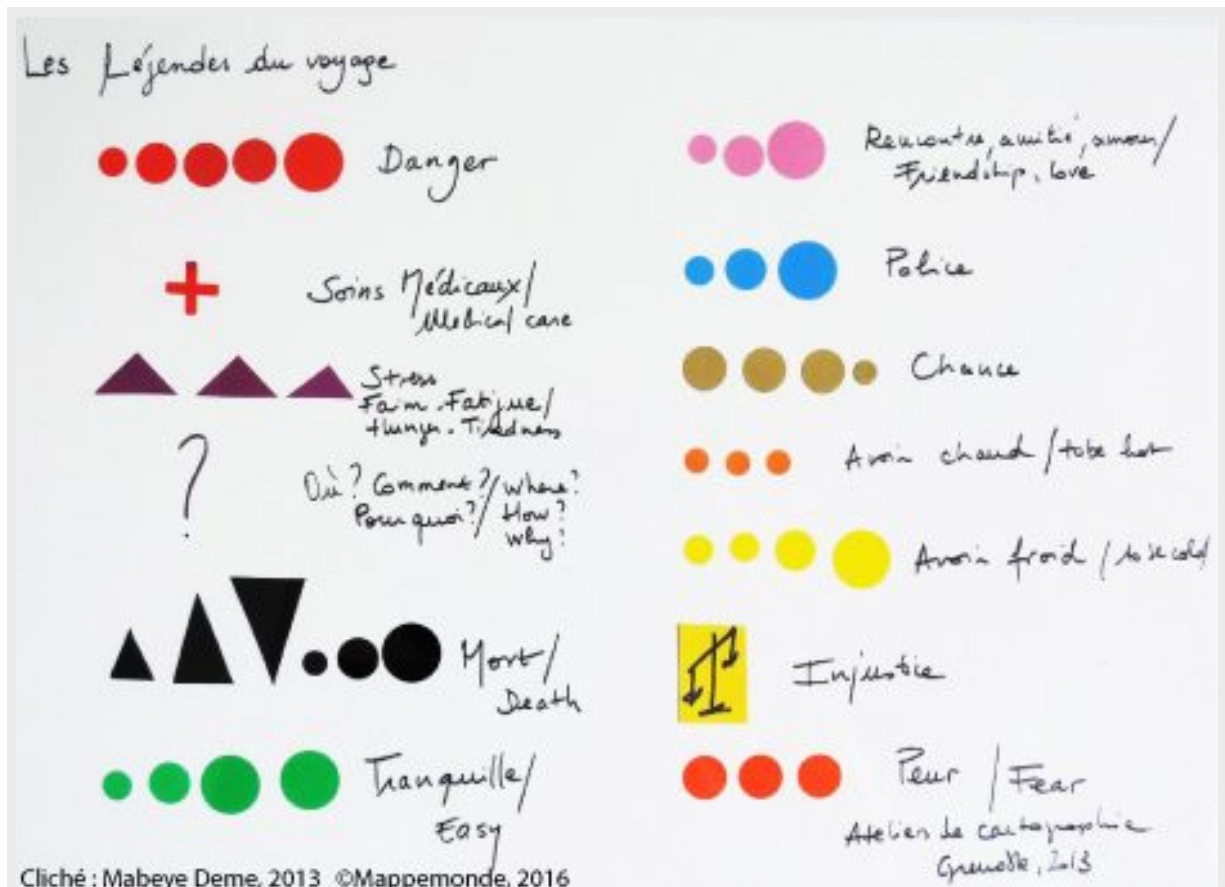 Les Léjendes du voyage
Danger
Soins Médicaux/
Medical care
Stress
Faim - Fatigue/
Hunger - Tiredness
?
Où? Comment?/Where?
Pourquoi?/How?
Why?
Mort/
Death
Tranquille/
Easy
Rencontre, amitié, amour/
Friendship, love
Police
Chance
Avoir chaud / to be hot
Avoir froid / to be cold
Injustice
Peur / Fear
Atelier de cartographie
Grenoble, 2013
Cliché : Mabeye Deme, 2013 ©Mappemonde, 2016